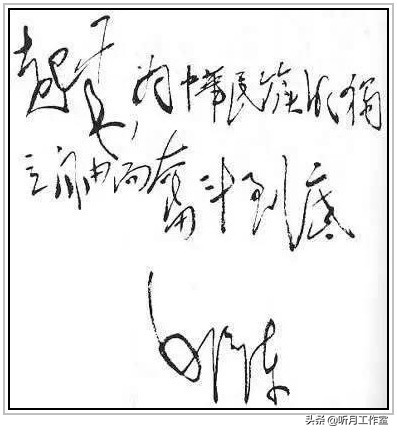 起来,为中華民族的獨
立自由而奮斗到底
毛泽东
头条 @听月工作室